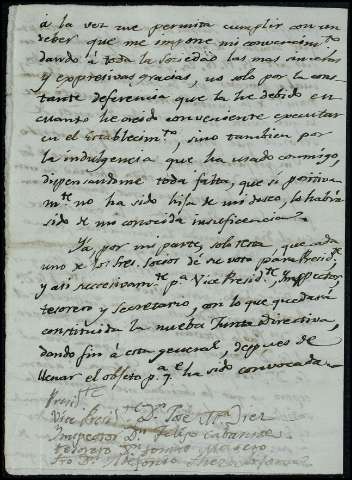 á la vez me permita cumplir con un
deber que me impone mi convencim.to
dando á toda la Sociedad las mas sinceras
y expresivas gracias, no solo por la cons
tante deferencia que la he debido en
cuanto he creido conveniente executar
en el Establecim.to, sino tambien por
la indulgencia que ha usado conmigo,
dispensandome toda falta, que si positiva
m.te no ha sido hija de mi deseo, lo habrá
sido de mi conocida insuficiencia.
Ya, por mi parte, solo resta, que cada
uno de los Sres. Socios dé su voto para Presid.te
y asi succesivam.te p.a Vice Presid.te, Inspector,
tesorero y Secretario, con lo que quedará
constituida la nueba Junta Directiva,
dando fin á esta general, despues de
llenar el objeto p.a q.e ha sido convocada.
Presid.te
Vice Presid.te D.n José M.a
Inspector D.n Felipe Cabañas
Tesorero D.n
Srio D.n Ildefonso